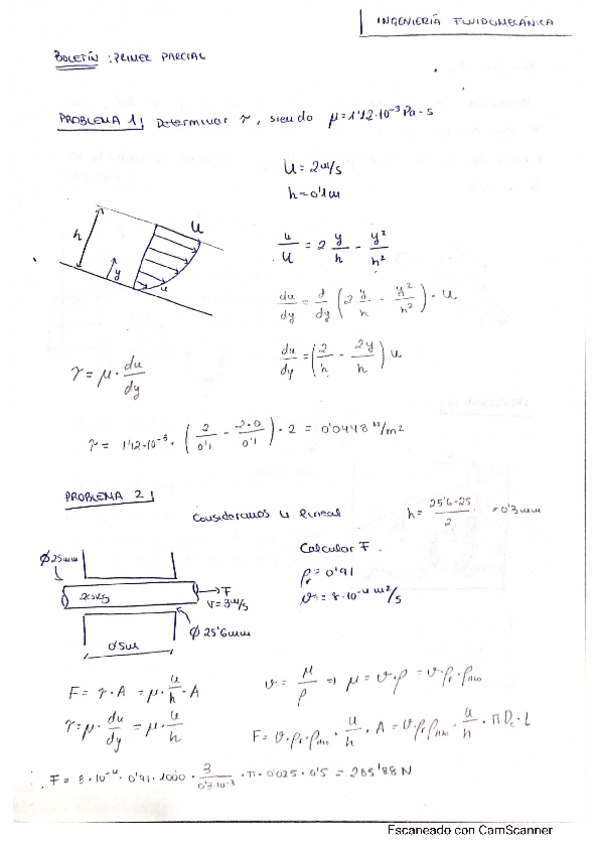 INGENIERÍA FLUIDOMECÁNICA
BOLETÍN: PRIMER PARCIAL
PROBLEMA 1 Determinar τ, siendo μ=1'12·10⁻³ Pa·s
U = 2m/s
h = 0'1m
h
U
y
u
u/U = 2 y/h - y²/h²
du/dy = d/dy (2 y/h - y²/h²) · U
du/dy = (2/h - 2y/h) U
τ = μ · du/dy
τ = 1'12·10⁻³ · (2/0'1 - 2·0/0'1) · 2 = 0'0448 N/m²
PROBLEMA 2
Consideramos u lineal
h = 25'6-25/2 = 0'3mm
Calcular F.
ρr = 0'91
ϑ = 8·10⁻⁴ m²/s
Ø25mm
20kg
F
V=3m/s
Ø 25'6mm
0'5m
F = τ·A = μ · u/h · A
ϑ = μ/ρ ⇒ μ = ϑ·ρ = ϑ·ρr·ρH₂O
τ = μ · du/dy = μ · u/h
F = ϑ·ρr·ρH₂O · u/h · A = ϑ·ρr·ρH₂O · u/h · πDc·L
F = 8·10⁻⁴ · 0'91 · 1000 · 3/0'3·10⁻³ · π · 0'025 · 0'5 = 285'88 N
Escaneado con CamScanner